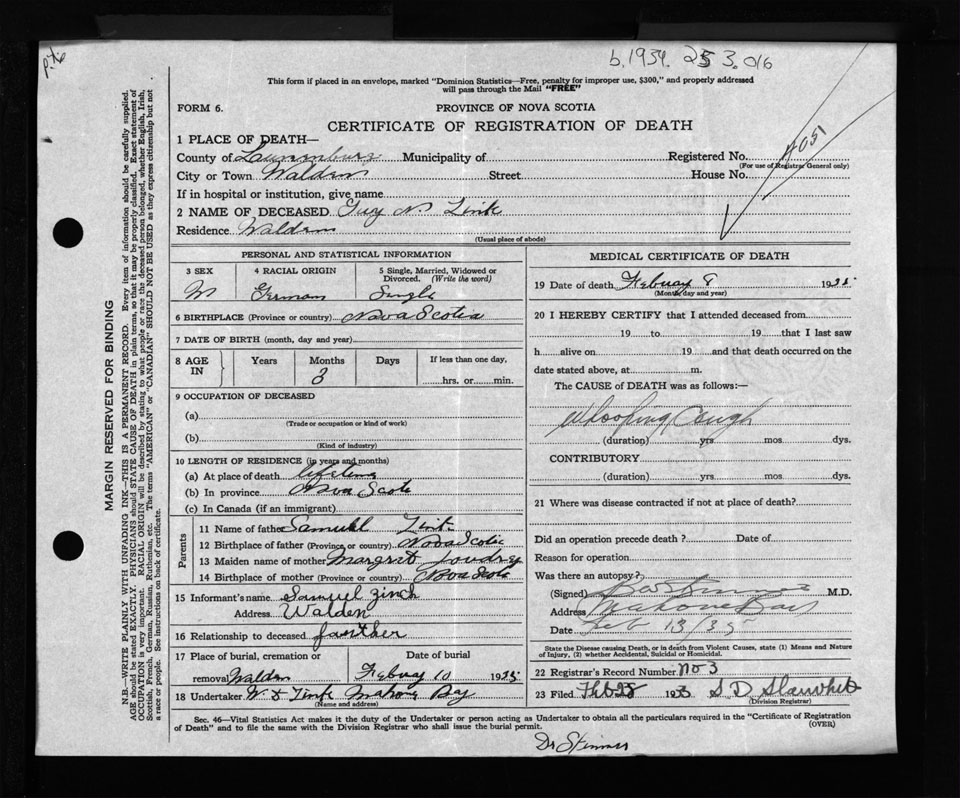 b. 1934. 253.016
This form if placed in an envelope, marked "Dominion Statistics—Free, penalty for improper use, $300," and properly addressed
will pass through the Mail "FREE"
FORM 6.
PROVINCE OF NOVA SCOTIA
CERTIFICATE OF REGISTRATION OF DEATH
1 PLACE OF DEATH—
County of Lunenburg Municipality of Registered No. 4051
(For use of Registrar General only)
City or Town Walden Street House No.
If in hospital or institution, give name
2 NAME OF DECEASED Guy N Zink
Residence Walden
(Usual place of abode)
PERSONAL AND STATISTICAL INFORMATION
3 SEX 4 RACIAL ORIGIN 5 Single, Married, Widowed or Divorced. (Write the word)
M German Single
6 BIRTHPLACE (Province or country) Nova Scotia
7 DATE OF BIRTH (month, day and year)
8 AGE IN Years Months Days If less than one day,
3 hrs. or min.
9 OCCUPATION OF DECEASED
(a)
(Trade or occupation or kind of work)
(b)
(Kind of industry)
10 LENGTH OF RESIDENCE (in years and months)
(a) At place of death lifetime
(b) In province Nova Scotia
(c) In Canada (if an immigrant)
Parents
11 Name of father Samuel Zink
12 Birthplace of father (Province or country) Nova Scotia
13 Maiden name of mother Margret Joudrey
14 Birthplace of mother (Province or country) Nova Scotia
15 Informant's name Samuel Zinch
Address Walden
16 Relationship to deceased fanther
17 Place of burial, cremation or removal Walden
Date of burial
Febuary 10 1935
18 Undertaker W. Zink Mahone Bay
(Name and address)
MEDICAL CERTIFICATE OF DEATH
19 Date of death Febuary 8 1935
(Month, day and year)
20 I HEREBY CERTIFY that I attended deceased from
19 to 19 that I last saw
h alive on 19 and that death occurred on the
date stated above, at m.
The CAUSE of DEATH was as follows:—
Whooping Cough
(duration) yrs mos. dys.
CONTRIBUTORY
(duration) yrs. mos. dys.
21 Where was disease contracted if not at place of death?
Did an operation precede death? Date of
Reason for operation
Was there an autopsy?
(Signed) M.D.
Address Mahone Bay
Date Feb 13/35
State the Disease causing Death, or in death from Violent Causes, state (1) Means and Nature
of Injury, (2) whether Accidental, Suicidal or Homicidal.
22 Registrar's Record Number No 3
23 Filed Feb 28 193 S. D. Slauwhite
(Division Registrar)
Sec. 46—Vital Statistics Act makes it the duty of the Undertaker or person acting as Undertaker to obtain all the particulars required in the "Certificate of Registration
of Death" and to file the same with the Division Registrar who shall issue the burial permit.
(OVER)
MARGIN RESERVED FOR BINDING
N.B.—WRITE PLAINLY WITH UNFADING INK—THIS IS A PERMANENT RECORD. Every item of information should be carefully supplied.
AGE should be stated EXACTLY. PHYSICIANS should STATE CAUSE OF DEATH in plain terms, so that it may be properly classified. Exact statement of
OCCUPATION is very important. RACIAL ORIGIN will be described by stating to what people or race the deceased person belonged, whether English, Irish,
Scottish, French, German, Russian, Ruthenian, etc. The terms "AMERICAN" or "CANADIAN" SHOULD NOT BE USED as they express citizenship but not
a race or people. See instructions on back of certificate.